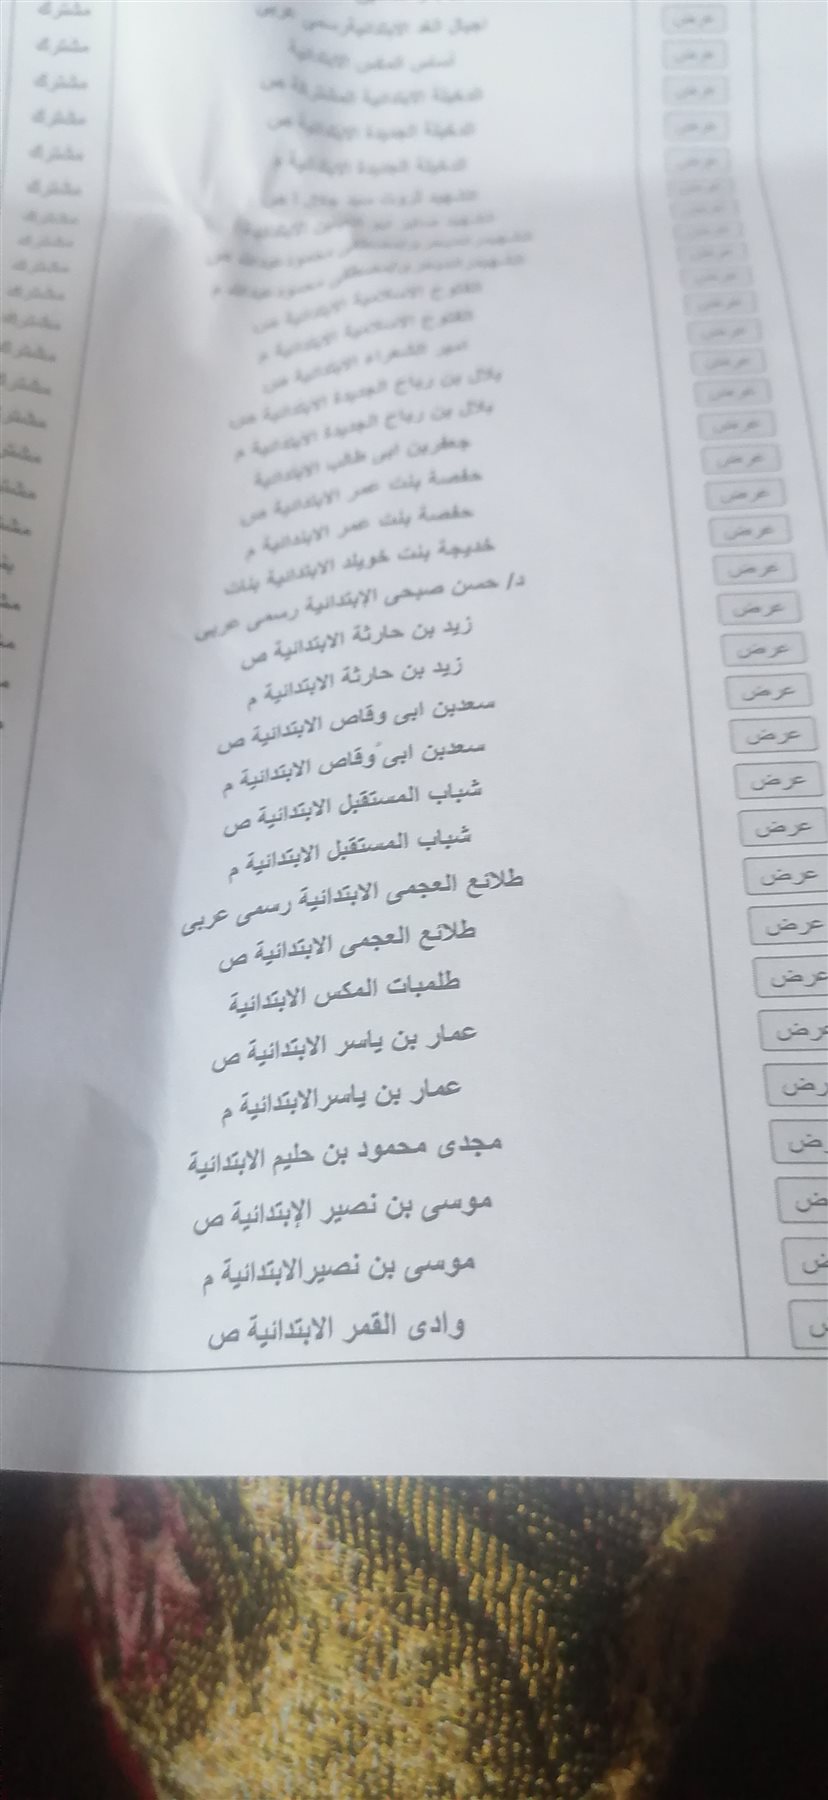 عرض اجيال الغد الابتدائية رسمى عربى مشترك
عرض أساس المكس الابتدائية مشترك
عرض الدخيلة الابتدائية المشتركة ص مشترك
عرض الدخيلة الجديدة الابتدائية ص مشترك
عرض الدخيلة الجديدة الابتدائية م مشترك
عرض الشهيد ثروت سيد مشترك
عرض الابتدائية مشترك
عرض محمود عبدالله ص مشترك
عرض محمود عبدالله م مشترك
عرض الفتوح الاسلامية الابتدائية ص مشترك
عرض الفتوح الاسلامية الابتدائية م مشترك
عرض امير الشعراء الابتدائية ص
عرض بلال بن رباح الجديدة الابتدائية ص
عرض بلال بن رباح الجديدة الابتدائية م
عرض جعفربن ابى طالب الابتدائية
عرض حفصة بنت عمر الابتدائية ص
عرض حفصة بنت عمر الابتدائية م
عرض خديجة بنت خويلد الابتدائية بنات
عرض د/ حسن صبحى الإبتدائية رسمى عربى
عرض زيد بن حارثة الابتدائية ص
عرض زيد بن حارثة الابتدائية م
عرض سعدبن ابى وقاص الابتدائية ص
عرض سعدبن ابى وقاص الابتدائية م
عرض شباب المستقبل الابتدائية ص
عرض شباب المستقبل الابتدائية م
عرض طلائع العجمى الابتدائية رسمى عربى
عرض طلائع العجمى الابتدائية ص
عرض طلمبات المكس الابتدائية
عرض عمار بن ياسر الابتدائية ص
عمار بن ياسرالابتدائية م
مجدى محمود بن حليم الابتدائية
موسى بن نصير الإبتدائية ص
موسى بن نصيرالابتدائية م
وادى القمر الابتدائية ص